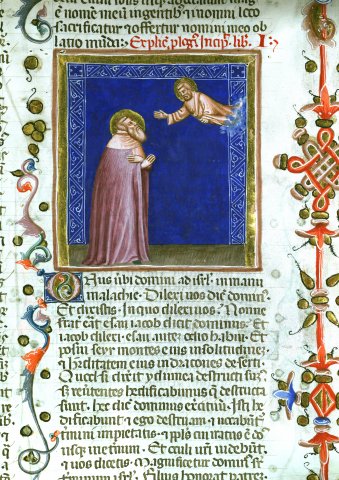 é nomé meũ ingentib; et ĩomni loco
sacrificatur et offertur nomini meo ob
latio mũda: Explic̃ plog̃. Incip̃. lib̃. I:
Onus ũbi domini ad isrł. in manu
malachie. Dilexi uos dic̃ domin9.
Et dixistis. In quo dilexi nos? Nonne
frat̃ erat̃ esau iacob dicit dominus. Et
iacob dilexi. esau autẽ odio habui. Et
posui seyr montes eius insolitudinez.
et h̃editatem eius indracones deserti.
Quod si dixerit ydumea destructi sum9
s; reũtentes hedificabimus que destructa
sunt. hec dic̃ dominus exercitũu. Isti he
dificabunt et ego destruam. et uocabũt
tmini impietatis. et ipls̃ cui iratus ẽ do
etnum. Et oculi uri uidebũt.
et uos dicetis. Magnificetur domin9 sr̃
isrł. Filius honorat patrez.